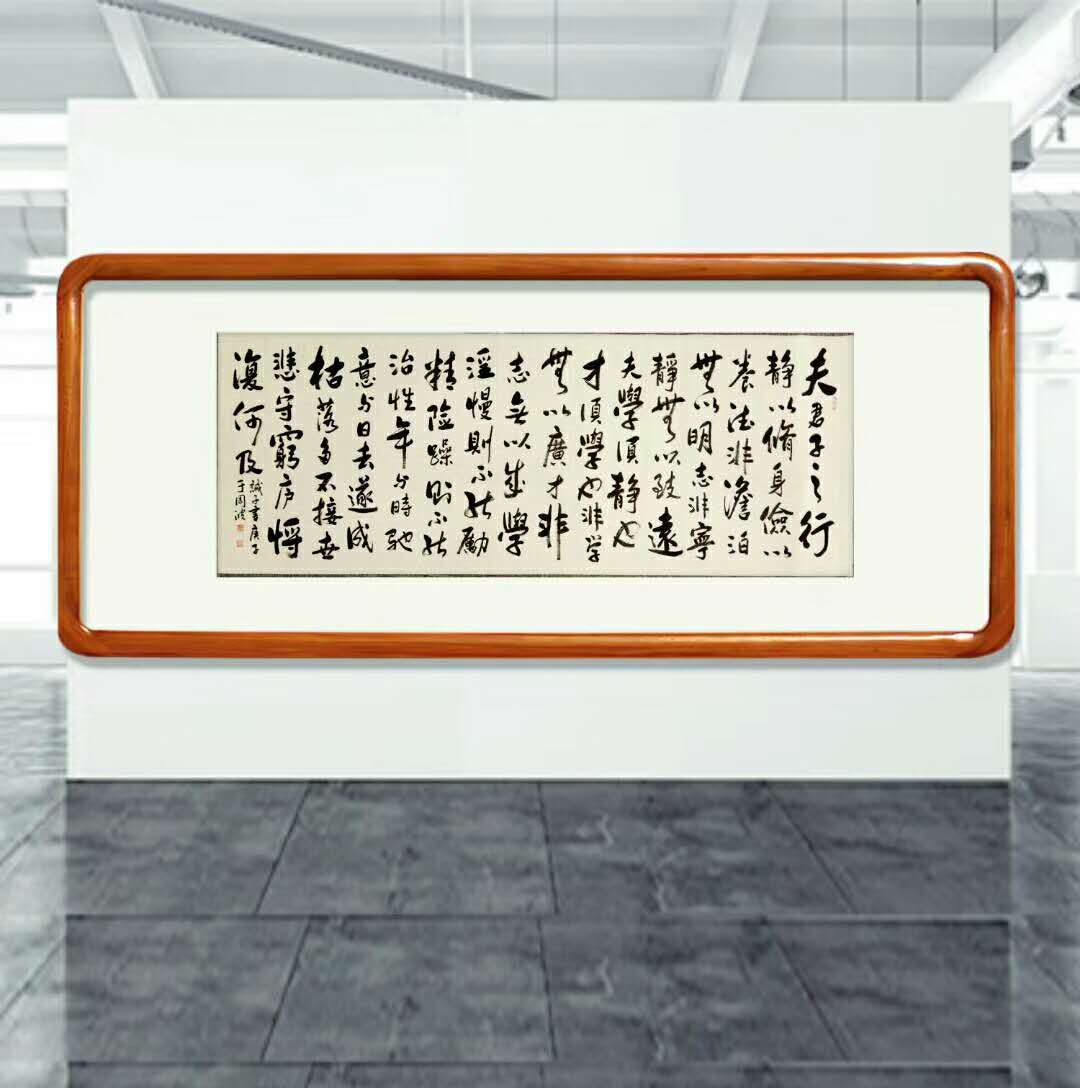 夫君子之行
静以脩身儉以
養德非澹泊
無以明志非寧
靜無以致遠
夫學須静也
才須學也非学
無以廣才非
志無以成學
淫慢則不能勵
精险躁則不能
治性年与時馳
意与日去遂成
枯落多不接世
悲守窮庐将
復何及
誡子書庚子